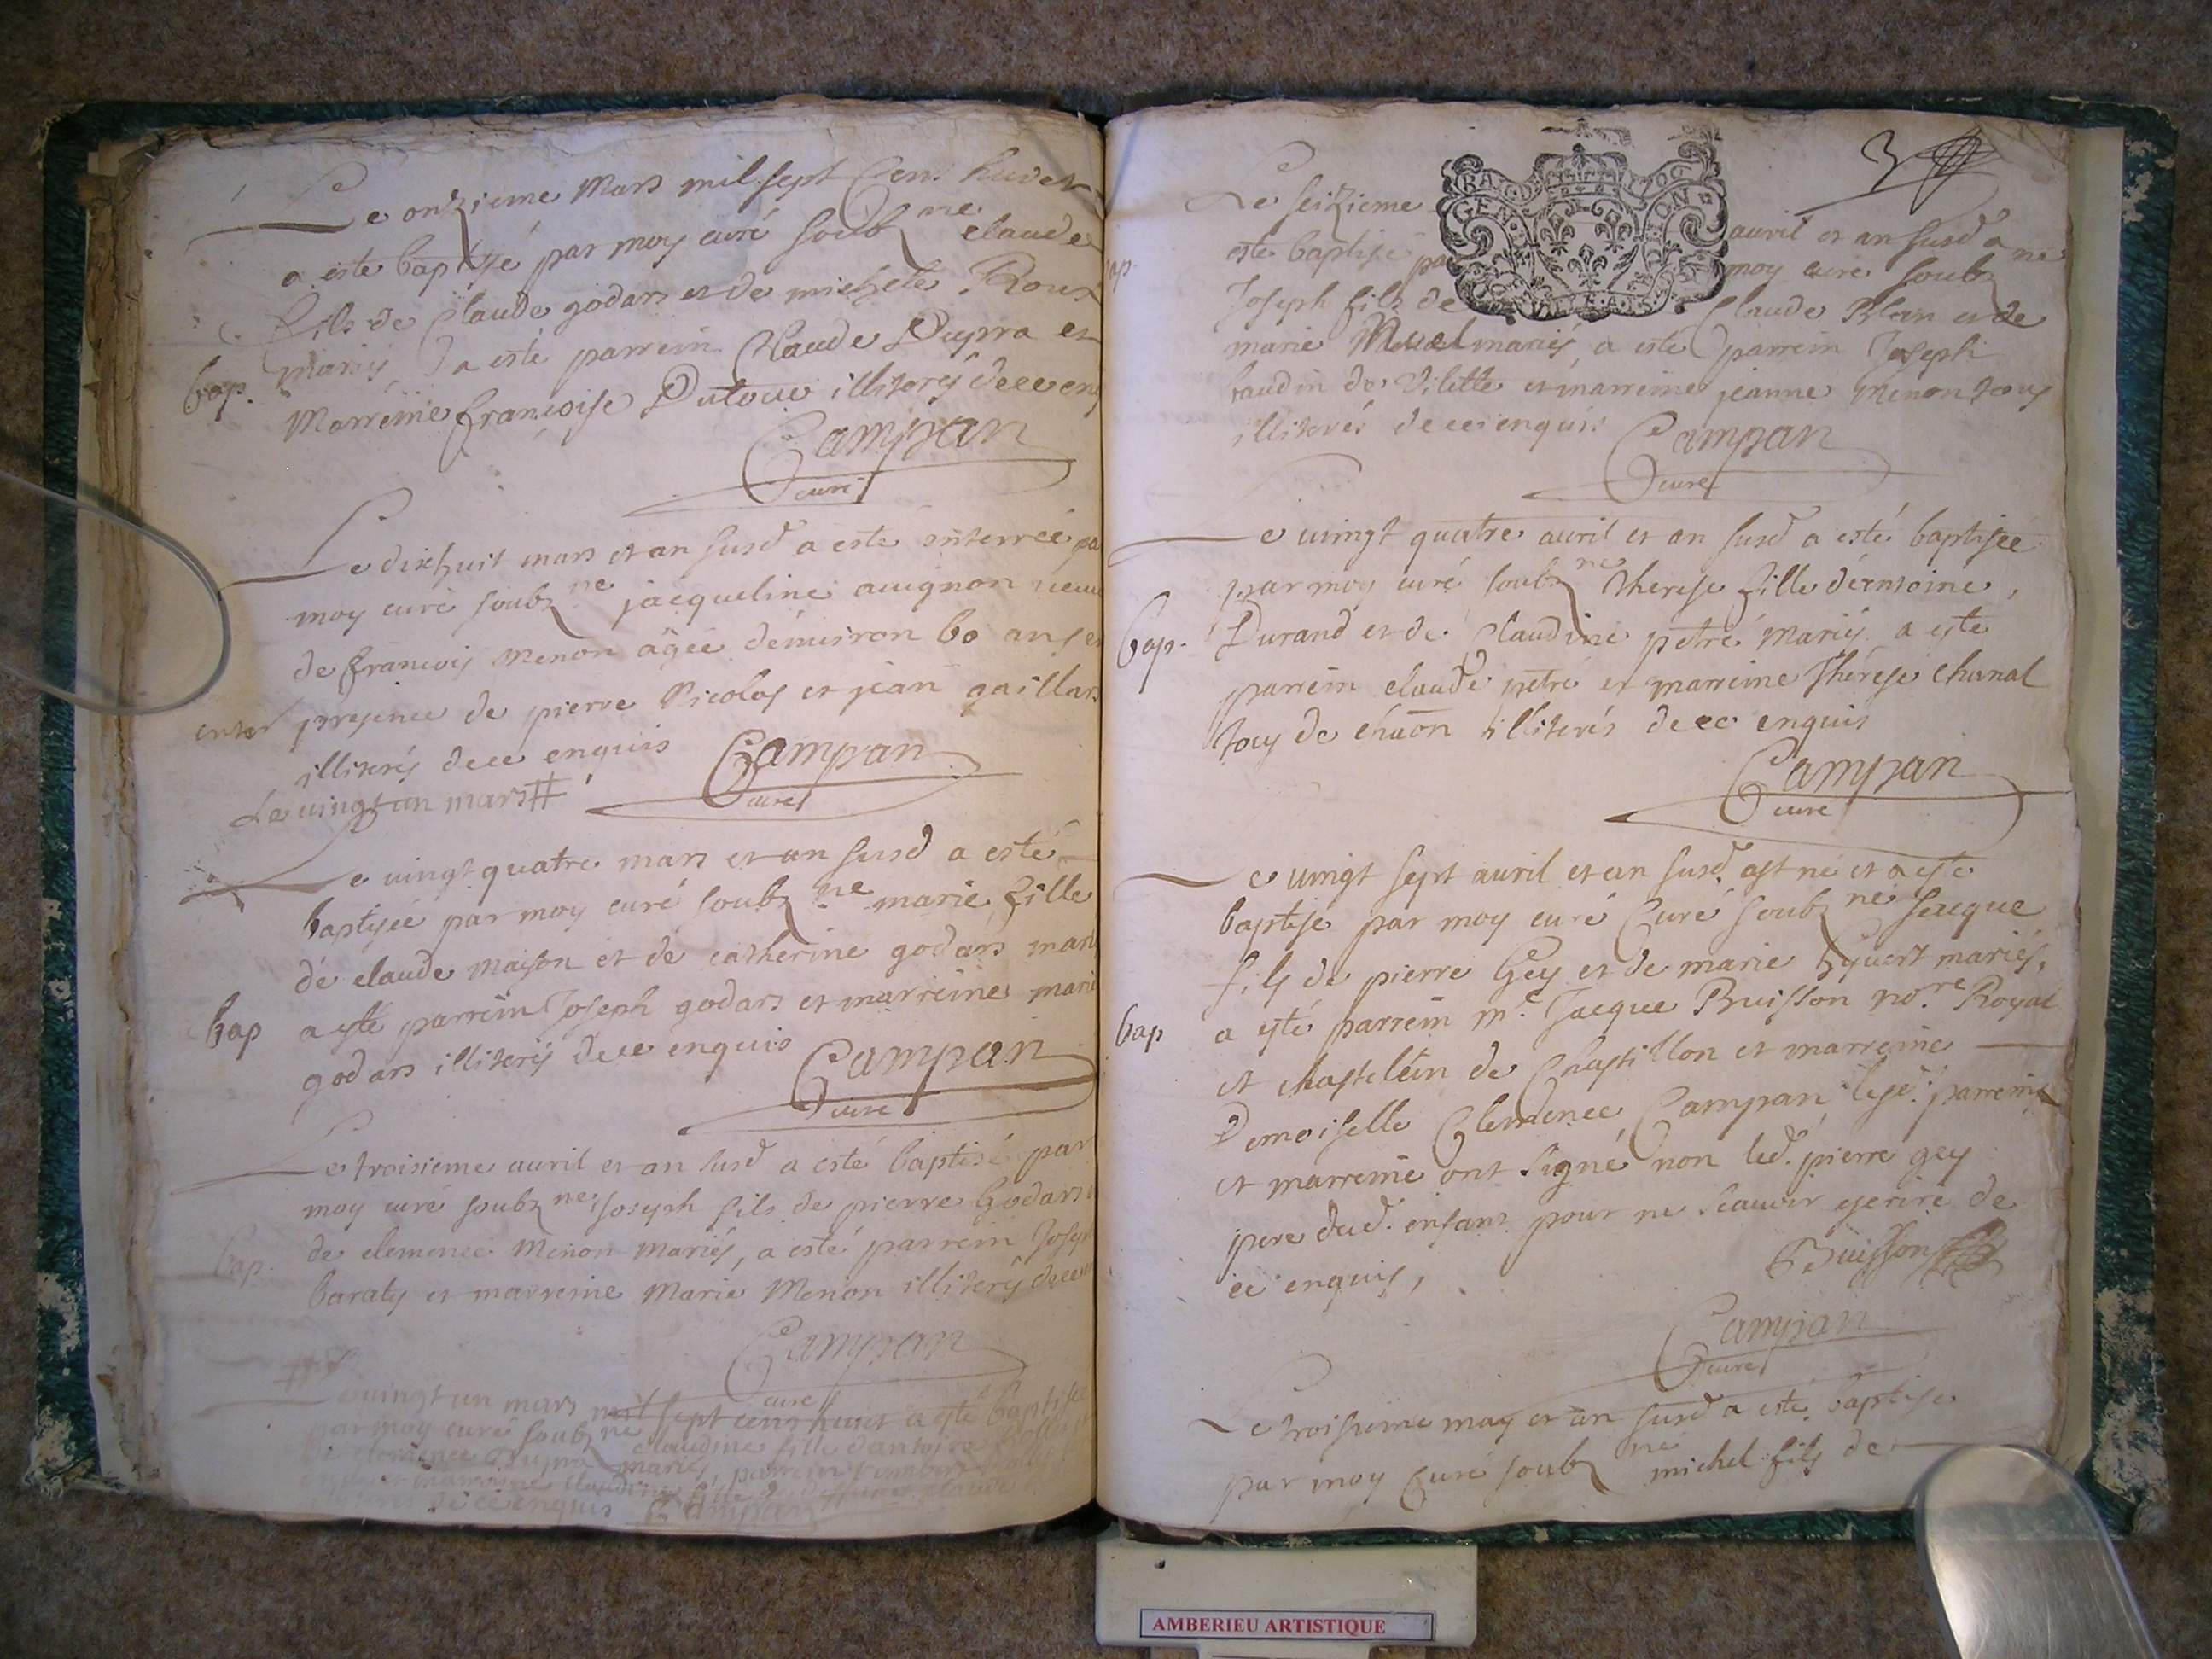 Le onzieme Mars mil sept Cent huit et
a este baptisé par moy curé soubz ne claude
fils de Claude godars et de michele Roux
bap. mariés a esté parrein Claude Dupra et
Marréine françoise illiterés de ce enq
Campan
curé
Le dixhuit mars et an susd a esté enterrée pa
moy curé soubz ne jacqueline auignon veuu
de francois Menon âgée d'enuiron 60 ans e
enter presence de pierre Nicolas et jean gaillar
illiterés de ce enquis Campan
curé
Le vingt un mars #
Le vingt quatre mars et an susd a esté
baptisée par moy curé soubz ne marie fille
de claude maison et de catherine godars mari
bap a esté parrein Joseph godars et marreine marie
godars illiterés de ce enquis Campan
curé
Le troisieme auril et an susd a esté baptisé par
moy curé soubz ne Joseph fils de pierre Godars
bap. de clemence Menon mariés, a esté parrein Josep
baraty et marreine Marie Menon illiterés de ce en
Campan
curé
#
Le vingt un mars mil sept cent huit a esté baptisée
par moy curé soubz ne claudine fille d'antoine
de clemence mariés, parrein
et marreine claudine
de ce enquis Campan
3
GEN
1707
Le seizieme auril et an susd a
bap. este baptisé par moy curé soubz ne
Joseph fils de Claude Blan et de
marie Muel mariés, a esté parrein Joseph
baudin de Vilette et marreine jeanne Menon tous
illiterés de ce enquis Campan
curé
Le vingt quatre auril et an susd a esté baptisée
par moy curé soubz ne Therese fille d'antoine,
bap. Durand et de Claudine petre mariés a este
parrein claude petre et marreine Thérese chanal
tous de illiterés de ce enquis
Campan
curé
Le vingt sept auril et an susd. est né et a este
baptisé par moy curé Curé soubz ne Jacque
fils de pierre Gey et de marie mariés,
bap a esté parrein mr. Jacque Buisson no.re Royal
et chastelein de Chastillon et marreine
Demoiselle Clemence Campan lesd. parrein
et marreine ont signé non led. pierre gey
pere dud. enfant pour ne scauoir escrire de
ce enquis, Buisson
Campan
curé
Le troisieme may et an susd a esté baptisé
par moy Curé soubz ne michel fils de
AMBERIEU ARTISTIQUE